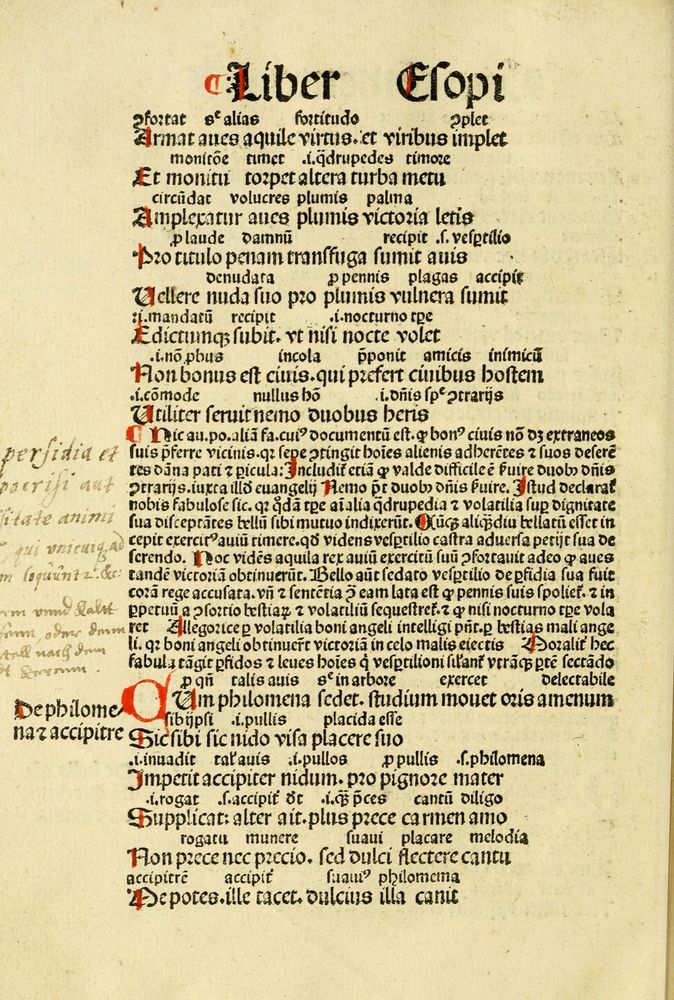 ¶ Liber Esopi
ꝯfortat sᵉ alias fortitudo ꝯplet
Armat aues aquile virtus. et viribus implet
monitõe timet .i. q̃drupedes timore
Et monitu torpet altera turba metu
circũdat volucres plumis palma
Amplexatur aues plumis victoria letis
ꝓ laude damnũ recipit .s. vesꝑtilio
Pro titulo penam transfuga sumit auis
denudata ꝓ pennis plagas accipit
Vellere nuda suo pro plumis vulnera sumit
.i. mandatũ recipit .i. nocturno tꝑe
Edictumqꝫ subit. vt nisi nocte volet
.i. nõ ꝓbus incola p̃ponit amicis inimicũ
Non bonus est ciuis. qui prefert ciuibus hostem
.i. cõmode nullus hõ .i. dñis spᵉ ꝯtrarijs
Utiliter seruit nemo duobus heris
¶ Hic au. po. aliã fa. cuiꝰ documentũ est. ꝙ bonꝰ ciuis nõ dꝫ extraneos
suis p̃ferre vicinis. qꝛ sepe ꝯtingit hoĩes alienis adherẽtes ⁊ suos deserẽ
tes dãna pati ⁊ ꝑicula: Includit̃ etiã ꝙ valde difficile ẽ ẜuire duobꝰ dñis
ꝯtrarijs. iuxta illđ euangelij Nemo p̃t duobꝰ dñis ẜuire. Istud declarat̃
nobis fabulose sic. qꝛ q̃dã tꝑe aĩalia q̃drupedia ⁊ volatilia suꝑ dignitate
sua disceptãtes bellũ sibi mutuo indixerũt. Cũqꝫ aliq̃diu bellatũ esset in
cepit exercitꝰ auiũ timere. qđ videns vesꝑtilio castra aduersa petijt sua de
serendo. Hoc vidẽs aquila rex auiũ exercitũ suũ ꝯfortauit adeo ꝙ aues
tandẽ victoriã obtinuerũt. Bello aũt sedato vesꝑtilio de ꝑfidia sua fuit
corã rege accusata. vñ ⁊ sentẽtia ꝯ̃ eam lata est ꝙ pennis suis spoliet̃. ⁊ in
ꝑpetuũ a ꝯsortio bestiaꝝ ⁊ volatiliũ sequestret̃. ⁊ ꝙ nisi nocturno tꝑe vola
ret Allegorice ꝑ volatilia boni angeli intelligi pñt. ꝑ bestias mali ange
li. qꝛ boni angeli obtinuert̃ victoriã in celo malis eiectis Moralit̃ hec
fabula tãgit ꝑfidos ⁊ leues hoĩes q̃ vesꝑtilioni sil̃ant̃ vtrãqꝫ ꝑtẽ sectãdo
ꝓ qñ talis auis sᵉ in arbore exercet delectabile
Cum philomena sedet. studium mouet oris amenum
De philome
na ⁊ accipitre
sibijpsi .i. pullis placida esse
Sic sibi sic nido visa placere suo
.i. inuadit tal̃ auis .i. pullos ꝓ pullis .s. philomena
Impetit accipiter nidum. pro pignore mater
.i. rogat .s. accipit̃ đt .i. q̃ꝫ p̃ces cantũ diligo
Supplicat: alter ait. plus prece carmen amo
rogatu munere suaui placare melodia
Non prece nec precio. sed dulci flectere cantu
accipitrẽ accipit̃ suauiꝰ philomema
Me potes. ille tacet. dulcius illa canit
persidia et
aut
animi